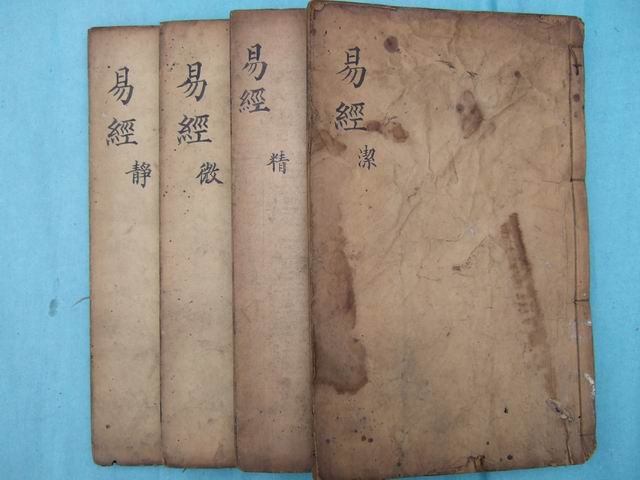 易經 潔
易經 精
易經 微
易經 靜